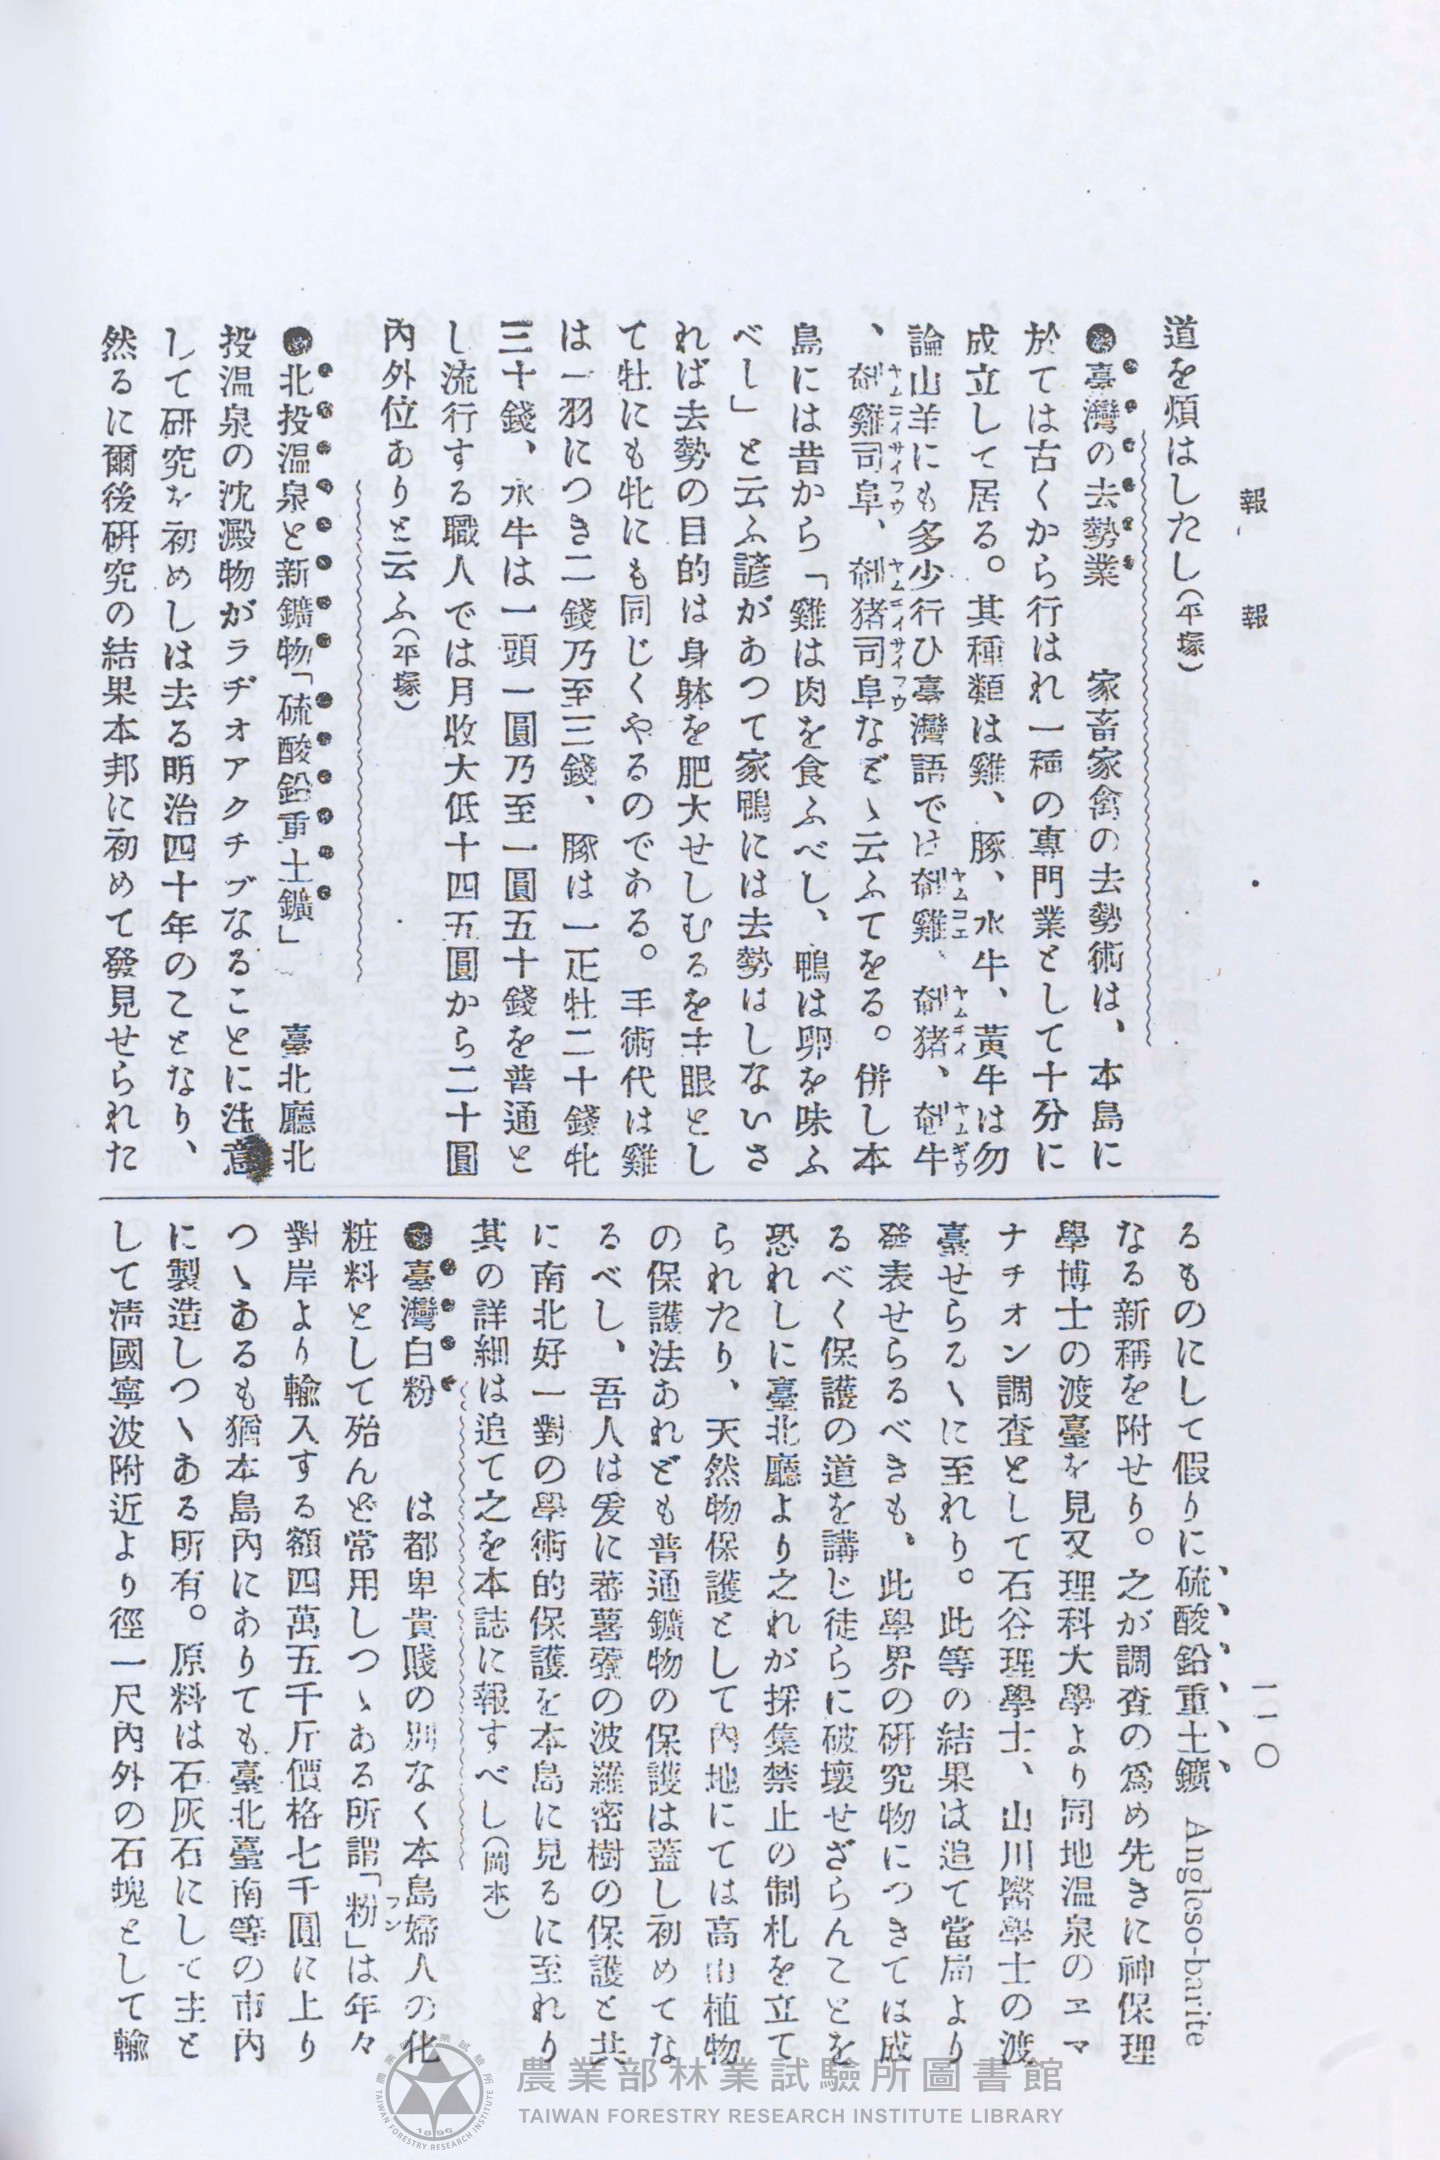 報報
一一〇
道を煩はしたし(平塚)
●臺灣の去勢業　家畜家禽の去勢術は、本島に
於ては古くから行はれ一種の專門業として十分に
成立して居る。其種類は雞、豚、水牛、黄牛は勿
論山羊にも多少行ひ臺灣語では雞、猪、牛
、雞司阜、猪司阜などゝ云ふてをる。併し本
島には昔から「雞は肉を食ふべし、鴨は卵を味ふ
べし」と云ふ諺があつて家鴨には去勢はしないさ
れば去勢の目的は身躰を肥大せしむるを主眼とし
て牡にも牝にも同じくやるのである。手術代は雞
は一羽につき二錢乃至三錢、豚は一疋牡二十錢牝
三十錢、水牛は一頭一圓乃至一圓五十錢を普通と
し流行する職人では月收大低十四五圓から二十圓
內外位ありと云ふ(平塚)
●北投温泉と新鑛物「硫酸鉛重土鑛」　臺北廳北
投温泉の沈澱物がラヂオアクチブなることに注意
して研究を初めしは去る明治四十年のことなり、
然るに爾後研究の結果本邦に初めて發見せられた
るものにして假りに硫酸鉛重土鑛 Angleso-barite
なる新稱を附せり。之が調査の爲め先きに神保理
學博士の渡臺を見又理科大學より同地温泉のヱマ
ナチオン調査として石谷理學士、山川醫學士の渡
臺せらるゝに至れり。此等の結果は追て當局より
發表せらるべきも、此學界の研究物につきては成
るべく保護の道を講じ徒らに破壞せざらんことを
恐れしに臺北廳より之れが採集禁止の制札を立て
られたり、天然物保護として內地にては高山植物
の保護法あれども普通鑛物の保護は蓋し初めてな
るべし、吾人は爰に蕃薯藔の波羅密樹の保護と共
に南北好一對の學術的保護を本島に見るに至れり
其の詳細は追て之を本誌に報すべし(岡本)
●臺灣白粉　は都卑貴賤の別なく本島婦人の化
粧料として殆んど常用しつゝある所謂「粉」は年々
對岸より輸入する額四萬五千斤價格七千圓に上り
つゝあるも猶本島內にありても臺北臺南等の市內
に製造しつゝある所有。原料は石灰石にして主と
して淸國寧波附近より徑一尺內外の石塊として輸
農業部林業試驗所圖書館
TAIWAN FORESTRY RESEARCH INSTITUTE LIBRARY